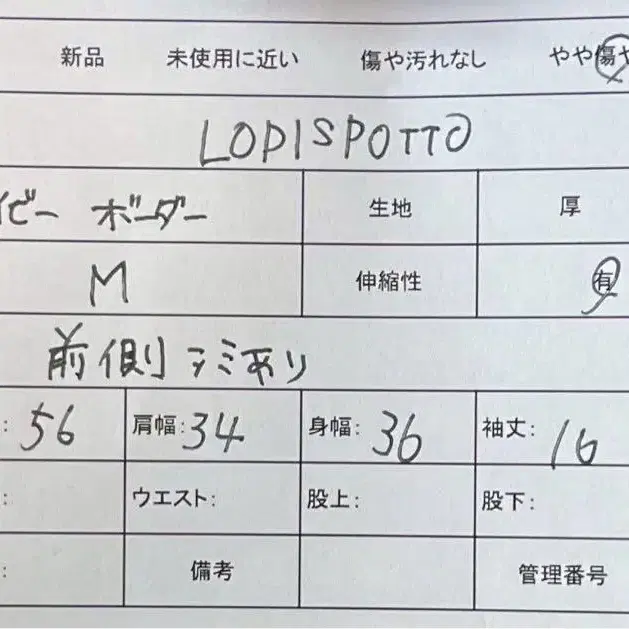 新品 未使用に近い 傷や汚れなし やや傷や
LODISPOTTO
イビー ボーダー 生地 厚
M 伸縮性 有
前側シミあり
: 56 肩幅: 34 身幅: 36 袖丈: 16
: ウエスト: 股上: 股下:
: 備考 管理番号